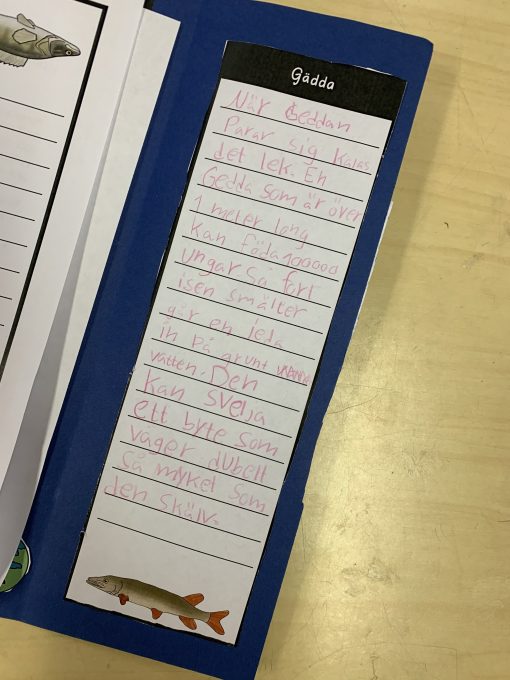 Gädda
När Geddan
Parar sig kalas
det lek. En
Gedda som är över
1 meter long
kan föda 100000
ungar Så fort
isen smälter
går en jeda
in på grunt
vatten. Den
kan svelja
ett byte som
väger dubelt
Så myket som
den skälv.